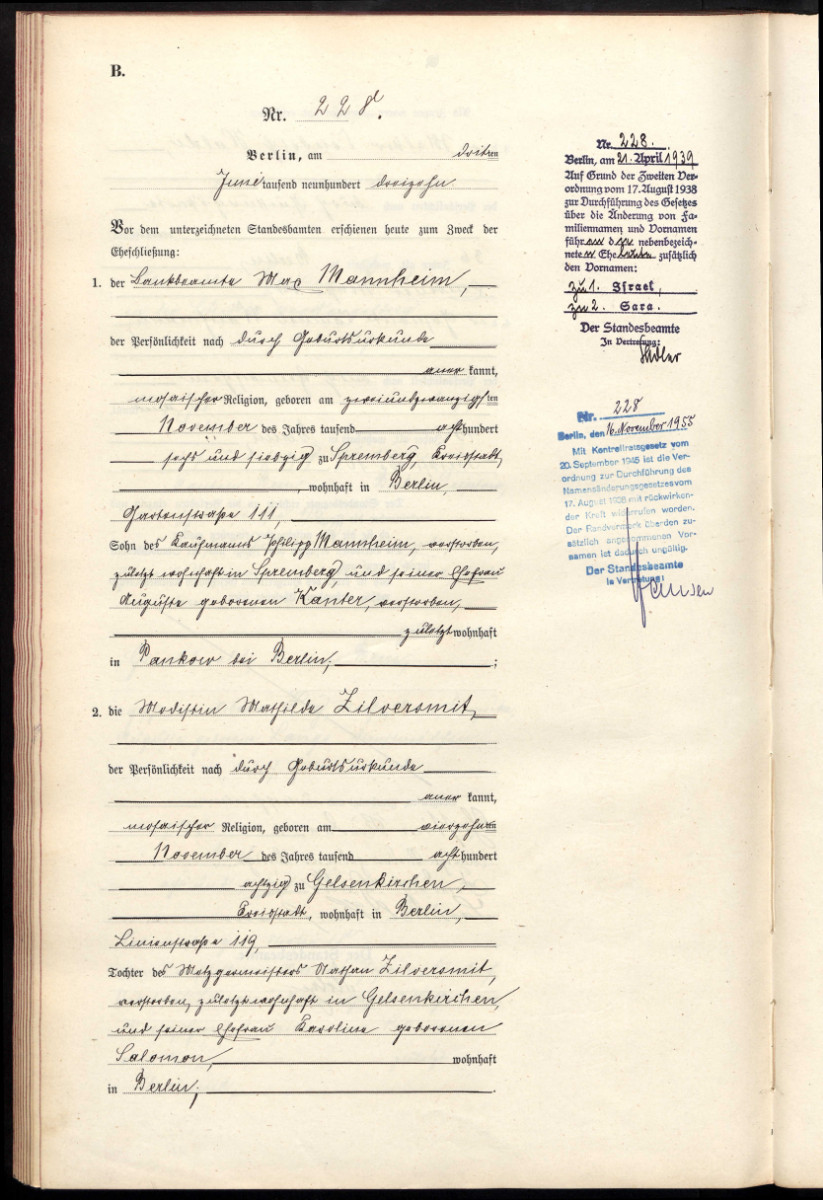 B.
Nr. 228.
Berlin, am dritten
Juni tausend neunhundert dreizehn
Vor dem unterzeichneten Standesbeamten erschienen heute zum Zweck der
Eheschließung:
1. der Bankbeamte Max Mannheim,
der Persönlichkeit nach durch Geburtsurkunde
aner kannt,
mosaischer Religion, geboren am zweiundzwanzigsten
November des Jahres tausend acht hundert
sechs und siebzig zu Spremberg, Kreisstadt,
, wohnhaft in Berlin,
Gartenstraße 111,
Sohn des Kaufmanns Philipp Mannheim, verstorben,
zuletzt wohnhaft in Spremberg, und seiner Ehefrau
Auguste geborenen Kanter, verstorben,
zuletzt wohnhaft
in Pankow bei Berlin, ;
2. die Modistin Mathilde Zilversmit,
der Persönlichkeit nach durch Geburtsurkunde
aner kannt,
mosaischer Religion, geboren am vierzehnten
November des Jahres tausend acht hundert
achtzig zu Gelsenkirchen,
Kreisstadt, wohnhaft in Berlin,
Linienstraße 119,
Tochter des Metzgermeisters Nathan Zilversmit,
verstorben, zuletzt wohnhaft in Gelsenkirchen,
und seiner Ehefrau Karoline geborenen
Salomon, wohnhaft
in Berlin; .
Nr. 228.
Berlin, am 21. April 1939
Auf Grund der Zweiten Ver-
ordnung vom 17. August 1938
zur Durchführung des Gesetzes
über die Änderung von Fa-
miliennamen und Vornamen
führen die nebenbezeich-
neten Eheleute zusätzlich
den Vornamen:
zu 1. Israel,
zu 2. Sara.
Der Standesbeamte
In Vertretung:
Nr. 228
Berlin, den 16. November 1955
Mit Kontrollratsgesetz vom
20. September 1945 ist die Ver-
ordnung zur Durchführung des
Namensänderungsgesetzes vom
17. August 1938 mit rückwirken-
der Kraft widerrufen worden.
Der Randvermerk über den zu-
sätzlich angenommenen Vor-
namen ist dadurch ungültig.
Der Standesbeamte
In Vertretung: